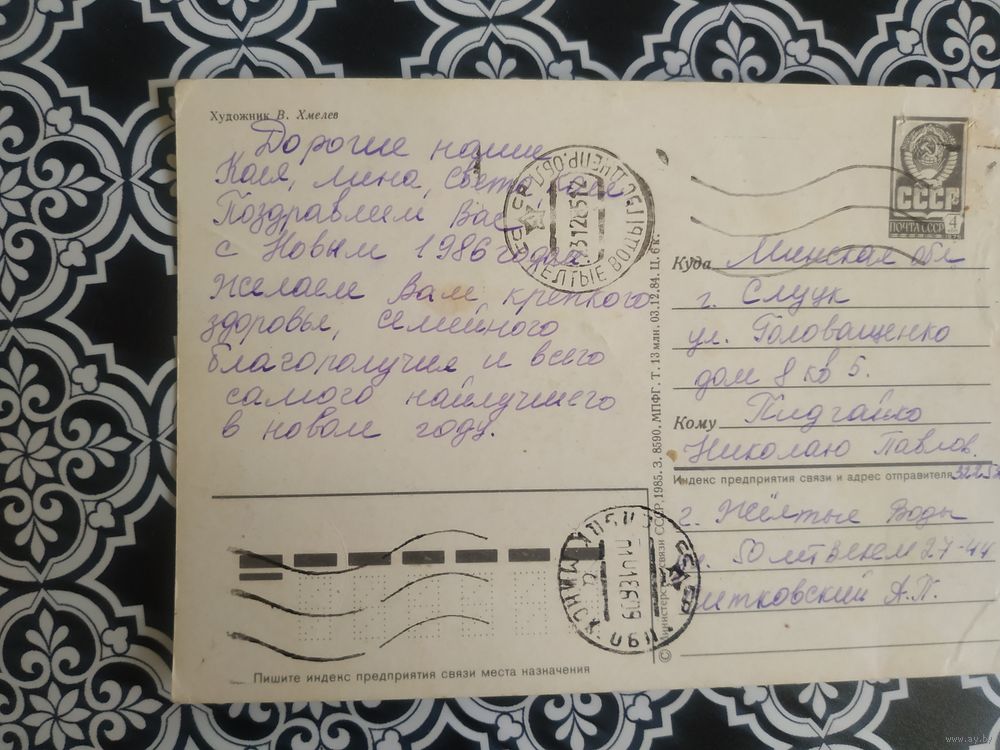 Художник В. Хмелев
Дорогие наши
Коля, Лина, Света,
Поздравляем Вас
с Новым 1986 годом.
Желаем Вам, крепкого
здоровья, семейного
благополучия и всего
самого наилучшего
в новом году.
СССР
ПОЧТА СССР
4
ЖЕЛТЫЕ ВОДЫ
Куда Минская обл
г. Слуцк
ул. Головащенко
дом 8 кв 5.
Кому Пидгайко
Николаю Павлов.
Индекс предприятия связи и адрес отправителя
г. Жёлтые Воды
27-44
А.П.
© Министерство связи СССР, 1985. З. 8590. МПФГ. Т. 13 млн. 03.12.84. Ц. 6 к.
Пишите индекс предприятия связи места назначения
www.ay.by